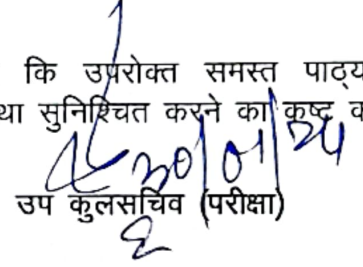 कि उपरोक्त समस्त पाठ्य
था सुनिश्चित करने का कष्ट क
30/01/24
उप कुलसचिव (परीक्षा)